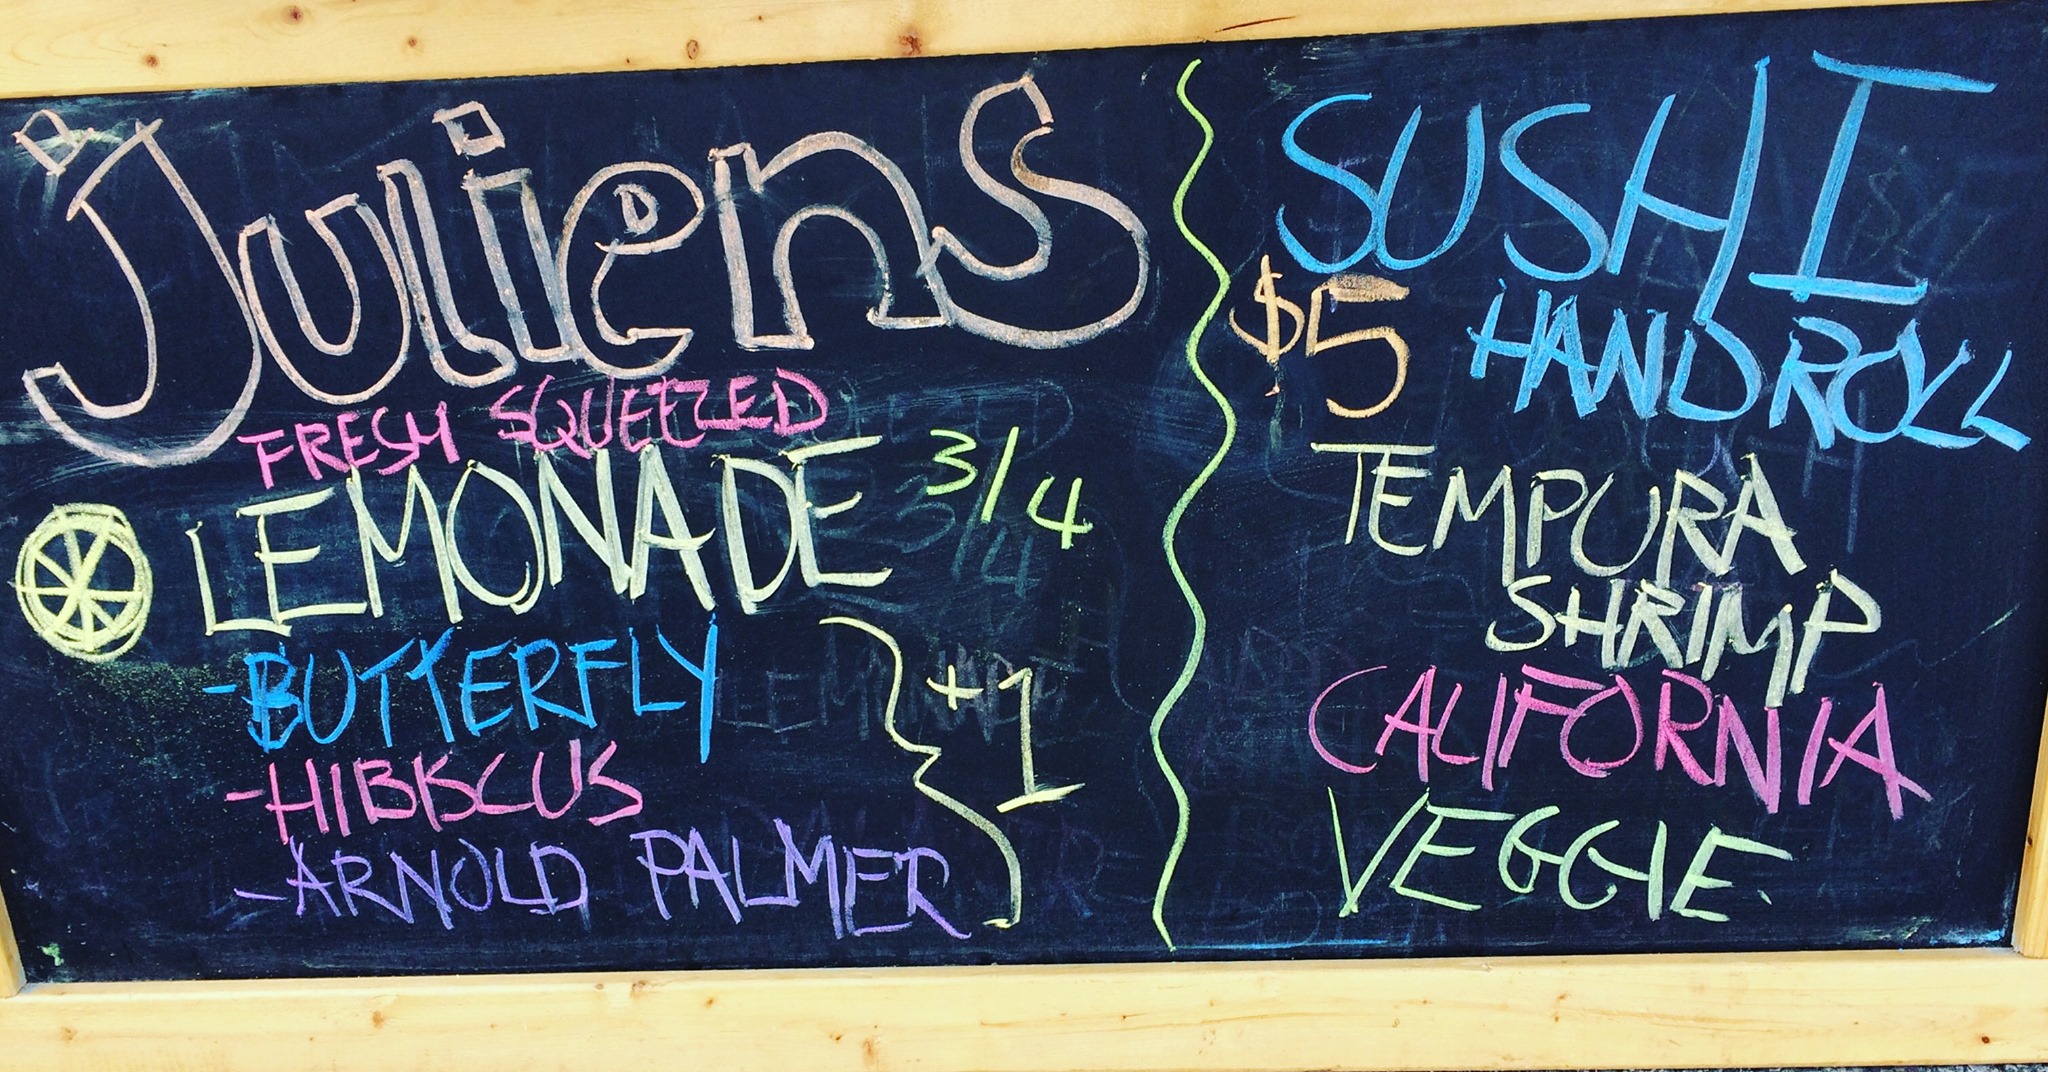 Juliens
FRESH SQUEEZED
LEMONADE 3/4
-BUTTERFLY
-HIBISCUS
-ARNOLD PALMER
+1
SUSHI
$5 HAND ROLL
TEMPURA
SHRIMP
CALIFORNIA
VEGGIE